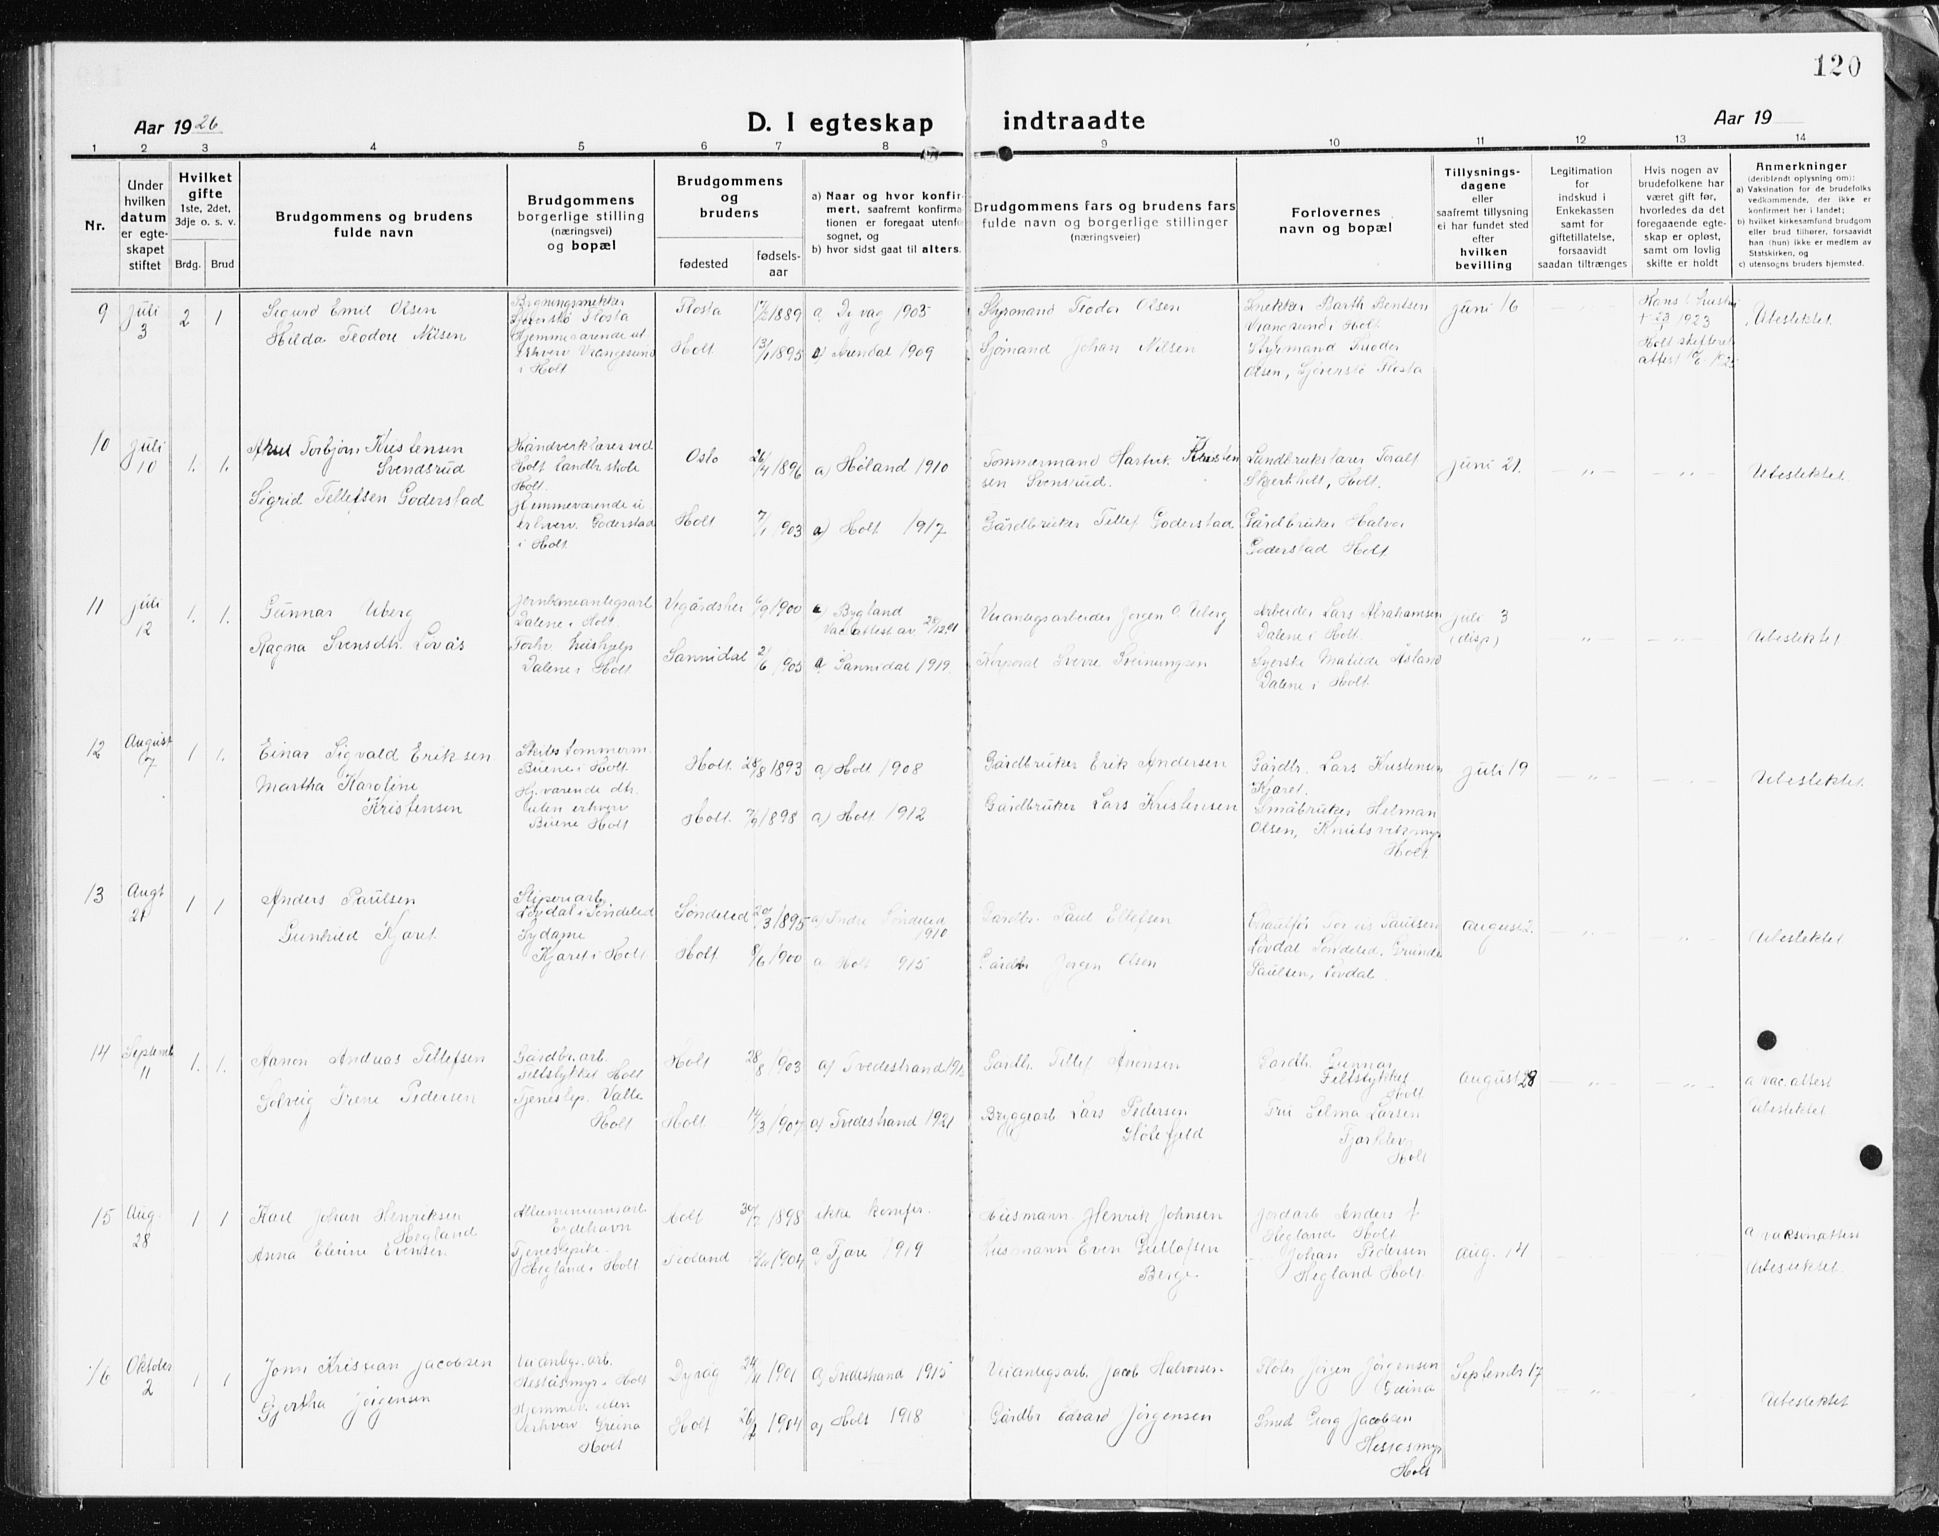 120
Aar 1926
D. I egteskap indtraadte
Aar 19
1 2 3 4 5 6 7 8 9 10 11 12 13 14
Nr.
Under
hvilken
datum
er egte-
skapet
stiftet
Hvilket
gifte
1ste, 2det,
3dje o. s. v.
Brdg. Brud
Brudgommens og brudens
fulde navn
Brudgommens
borgerlige stilling
(næringsvei)
og bopæl
Brudgommens
og
brudens
fødested
fødsels-
aar
a) Naar og hvor konfir-
mert, saafremt konfirma-
tionen er foregaat utenfor
sognet, og
b) hvor sidst gaat til alters.
Brudgommens fars og brudens fars
fulde navn og borgerlige stillinger
(næringsveier)
Forlovernes
navn og bopæl
Tillysnings-
dagene
eller
saafremt tillysning
ei har fundet sted
efter
hvilken
bevilling
Legitimation
for
indskud i
Enkekassen
samt for
giftetillatelse,
forsaavidt
saadan tiltrænges
Hvis nogen av
brudefolkene har
været gift før,
hvorledes da det
foregaaende egte-
skap er opløst,
samt om lovlig
skifte er holdt
Anmerkninger
(deriblendt oplysning om):
a) Vaksination for de brudefolks
vedkommende, der ikke er
konfirmert her i landet;
b) hvilket kirkesamfund brudgom
eller brud tilhører, forsaavidt
han (hun) ikke er medlem av
Statskirken, og
c) utensogns bruders hjemsted.
9
Juli
3
2 1
Sigurd Emil Olsen
Hilda Teodore Nilsen
Flosta
Hjemmevarende ut
erhverv Vrangesund
i Holt
Flosta 1889
Holt 13/1 1895
a) Dyvag 1905
a) Arendal 1909
Styrmand Teodor Olsen
Sjømand Johan Nilsen
Snekker Barth Bentsen
Vrangsund i Holt
Styrmand
Olsen, Flosta
juni 16
1923
Ubeslektet
10
Juli
10
1. 1.
Torbjørn Kristensen
Svendsrud
Sigrid Tellefsen Goderstad
Håndverklærer ved
Holt landbr. skole
Holt.
Hjemmeværende u
erhverv. Goderstad
i Holt
Oslo 26/4 1896
Holt 7/1 1903
a) Høland 1910
a) Holt 1917
Tømmermand Hartvik Kristen
sen Svensrud.
Gårdbruker Tellef Goderstad
Landbrukslærer Toralf
Skjerkholt, Holt.
Gårdbruker Halvor
Goderstad Holt
juni 21.
Ubeslektet
11
juli
12
1. 1.
Gunnar Uberg
Ragna Svensdtr. Lovås
Jernbaneanlegsarb
Dalene i Holt.
Forhv. hushjelp
Dalene i Holt
Vegårdshei 6/9 1900
Sannidal 21/6 1905
a) Bygland
Vac.attest av 28/12 21
a) Sannidal 1919.
Veianlegsarbeider Jørgen O. Uberg
Korporal Sverre Sveinungsen
Arbeider Lars Abrahamsen
Dalene i Holt.
Syerske Matilde Åsland
Dalene i Holt.
juli 3
(disp.)
Ubeslektet
12
August
7
1 1.
Einar Sigvald Eriksen
Martha Karoline
Kristensen
Skibstømmerm.
Buene i Holt
Hj. værende dtr.
uten erhverv
Buene Holt
Holt. 28/8 1893
Holt. 7/9 1898
a) Holt 1908
a) Holt 1912
Gårdbruker Erik Andersen
Gårdbruker Lars Kristensen
Gårdbr. Lars Kristensen
Kjaret.
Småbruker Helman
Olsen, Knutsvikmyr
Holt
juli 19
Ubeslektet
13
Augt
21
1 1
Anders Paulsen
Gunhild Kjaret
Løvdal i Søndeled
Sydame
Kjaret i Holt
Søndeled 20/3 1895
Holt 8/6 1900
a) Indre Søndeled
1910
a Holt 915
Gardbr. Paul Ellefsen
Gårdbr Jørgen Olsen
Paulsen
Løvdal Søndeled.
Paulsen, Løvdal.
august 2.
Ubeslektet
14
Septemb
11
1. 1.
Aanon Andreas Tellefsen
Solveig Irene Pedersen
Gårdbr. arb.
Holt
Tjenestep. Valle
Holt
Holt 28/8 1903
Holt 14/3 1907
a) Tvedestrand
a) Tvedestrand 1921
Gardb. Tellef Anonsen
Bryggearb Lars Pedersen
Gardb. Gunnar
Holt
Fru Selma Larsen
Holt
august 28
a vac. attest
Ubeslektet
15
Aug.
28
1 1
Karl Johan Henriksen
Hegland
Anna Elerine Evensen
Aluminiumsarb
Eydehavn
Tjenestepike
Hegland i Holt
Holt 30/12 1898
Froland 1904
ikke komfir.
a) Fjære 1919
Husmann. Henrik Johnsen
Husmann Even Gullofsen
Berge
Jordarb Anders
Hegland Holt
Johan Pedersen
Hegland Holt
Aug. 14
a vaksinattest
Ubeslektet.
16
Oktober
2
1 1
John Kristian Jacobsen
Gjertha Jørgensen
Veianlegs. arb.
Heståsmyr i Holt
Hjemmev. uten
erhverv Greina
Holt
Dyvag 24/11 1901
Holt 1904
a) Tvedestrand 1915
a) Holt 1918
Veianlegsarb. Jacob Halvorsen
Gårdbr Edvard Jørgensen
Fløter Jørgen Jørgensen
Greina
Smed Georg Jacobsen
Hestosmyr
Holt
September 17
Ubeslektet